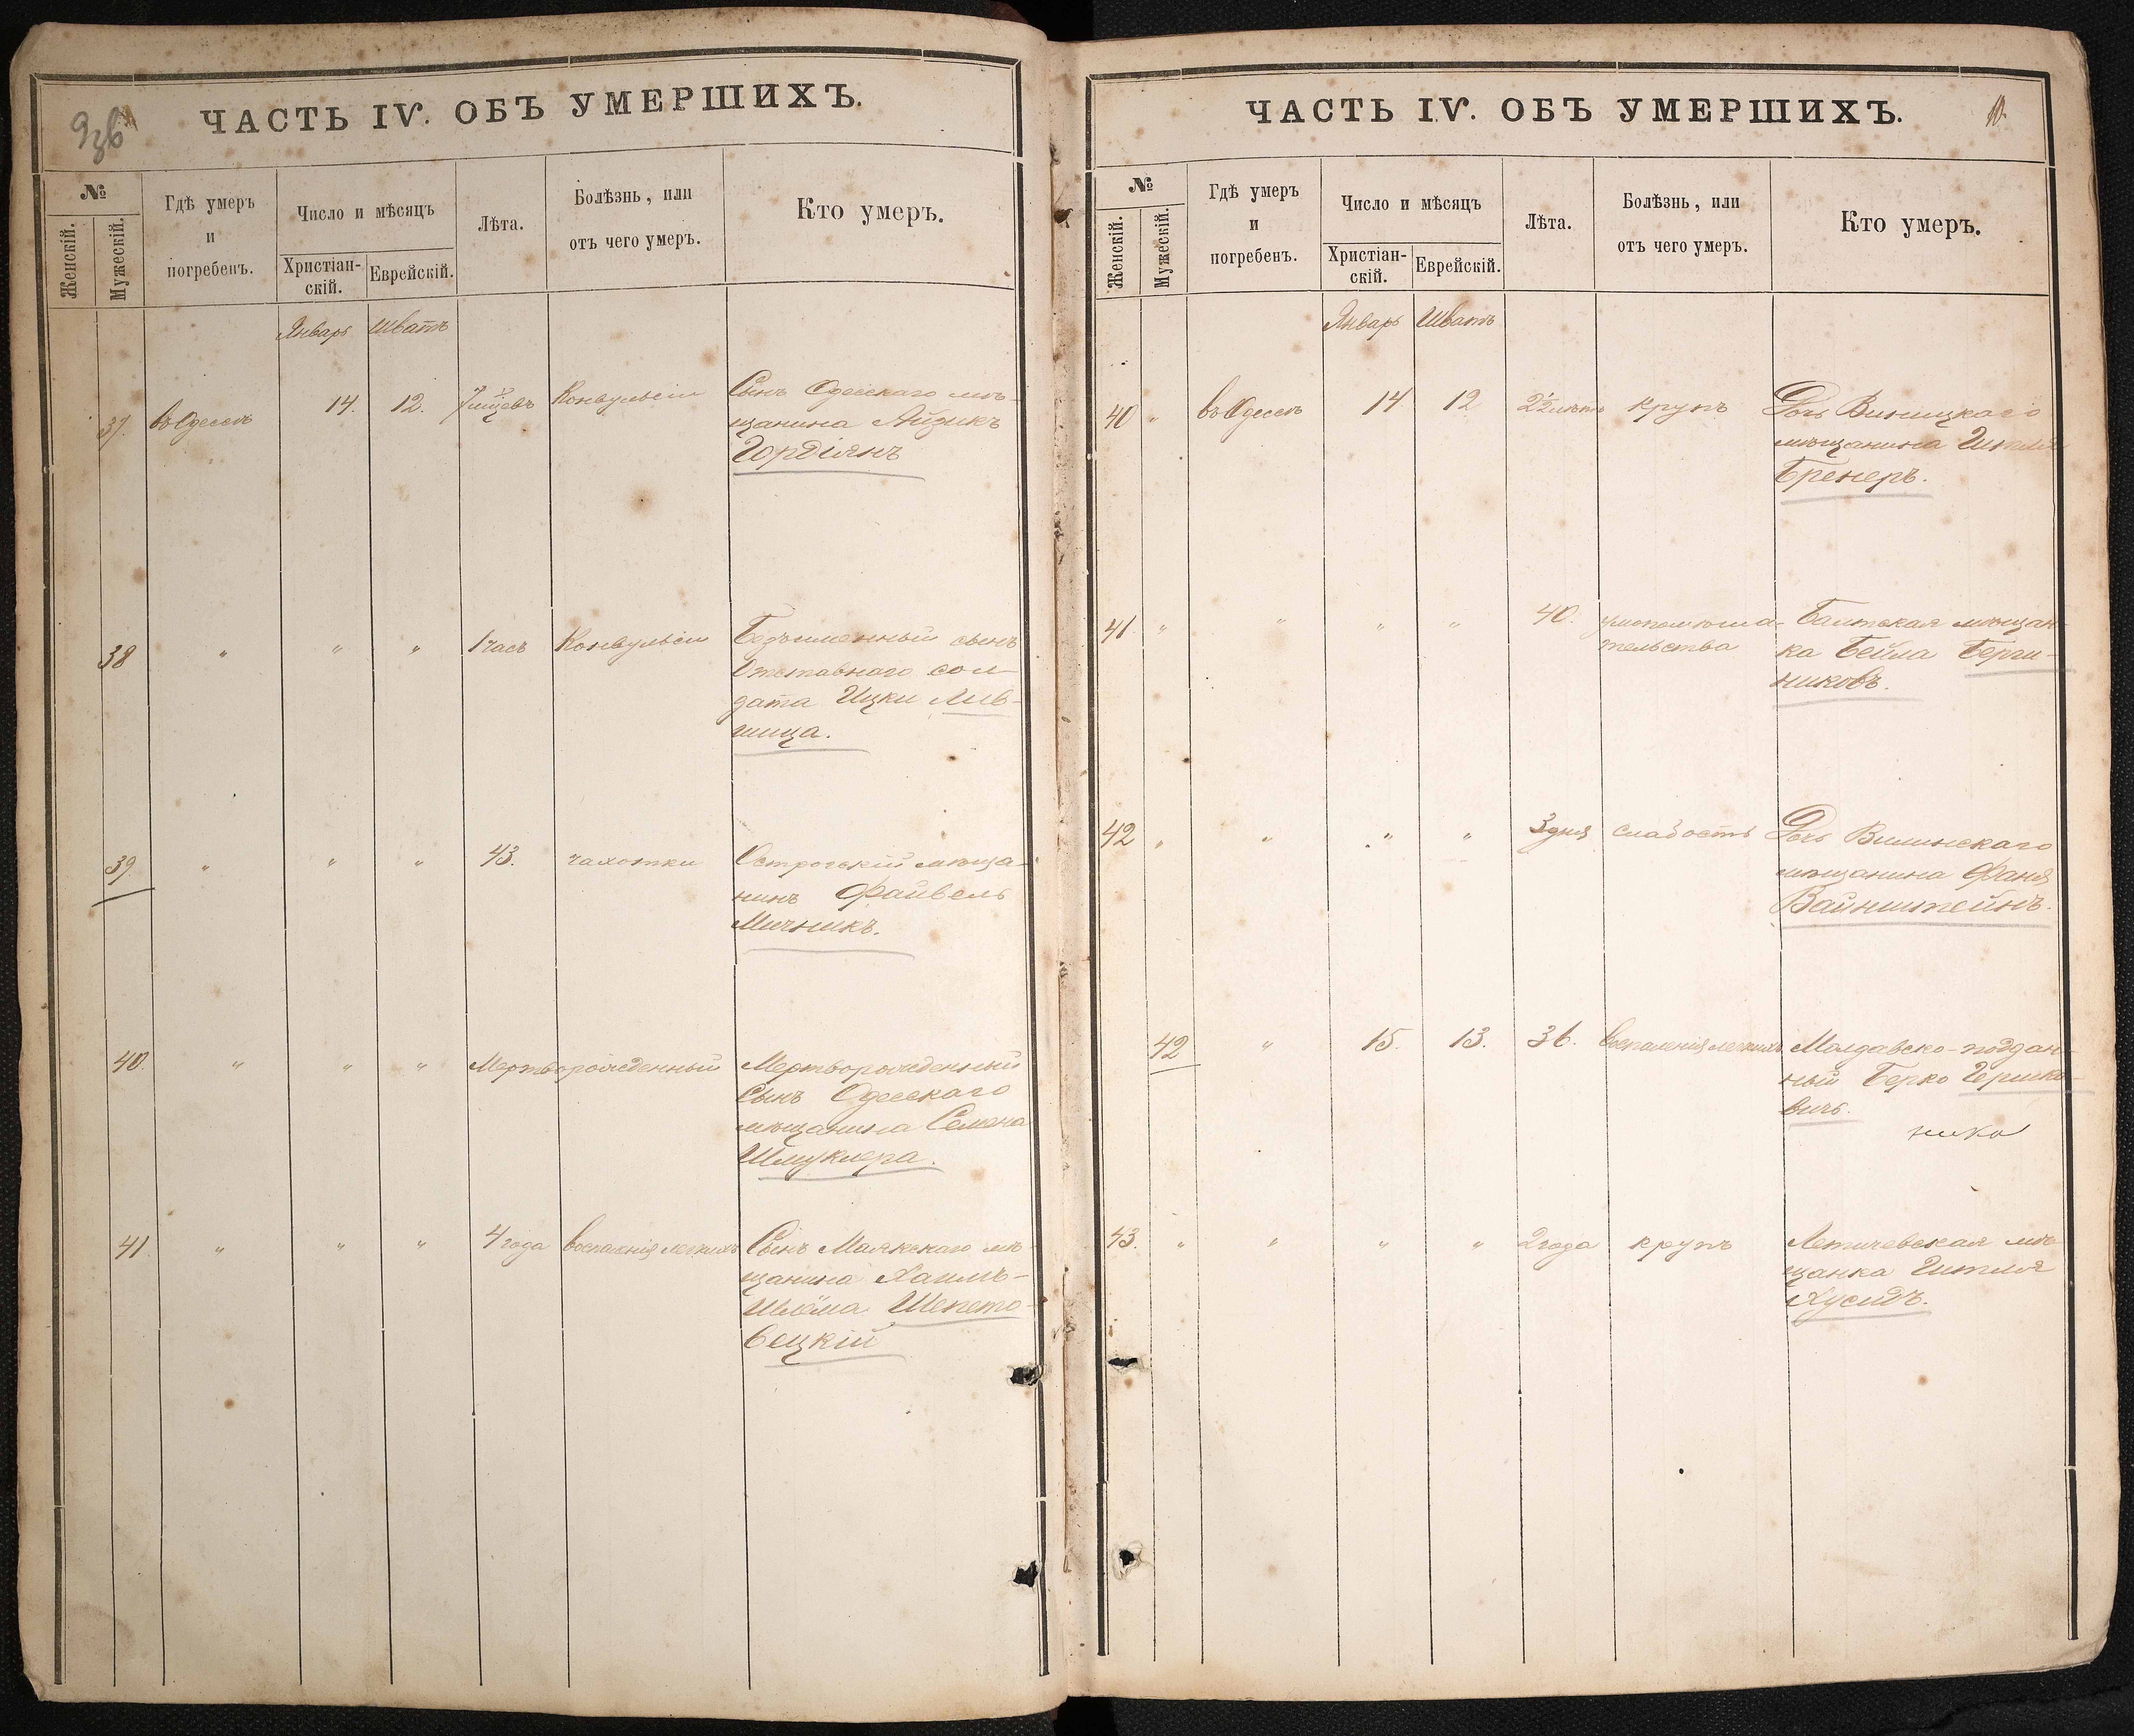 936
ЧАСТЬ IV. ОБЪ УМЕРШИХЪ.
№
Женскій.
Мужескій.
Гдѣ умеръ
и
погребенъ.
Число и мѣсяцъ
Христіан-
скій.
Еврейскій.
Лѣта.
Болѣзнь, или
отъ чего умеръ.
Кто умеръ.
Январь Шватъ
37. въ Одессѣ 14. 12. 7 мѣсцевъ Конвульсіи Сынъ Одесскаго мѣ-
щанина Айзикъ
Гордіянъ
38 " " " 1 часъ Конвульсіи Безъименный сынъ
Отставнаго сол-
дата Ицки Лив-
шица.
39. " " " 43. чахотки Острогскій мѣща-
нинъ Файвель
Мичникъ.
40. " " " Мертворожденный Мертворожденный
сынъ Одесскаго
мѣщанина Семена
Шмуклера.
41. " " " 4 года воспаленія легкихъ Сынъ Маякскаго мѣ-
щанина Хаимъ-
Шлёма Шепето-
вецкій
ЧАСТЬ IV. ОБЪ УМЕРШИХЪ.
10.
№
Женскій.
Мужескій.
Гдѣ умеръ
и
погребенъ.
Число и мѣсяцъ
Христіан-
скій.
Еврейскій.
Лѣта.
Болѣзнь, или
отъ чего умеръ.
Кто умеръ.
Январь Шватъ
40 " въ Одессѣ 14 12 2 1/2 лѣтъ крупъ Дочь Виницкаго
мѣщанина Гитля
Бренеръ.
41 " " " " 40. умопомѣша-
тельства
Балтская мѣщан-
ка Бейла Берги-
никовъ.
42 " " " " 3 дня слабость Дочь Вилинскаго
мѣщанина Фаня
Вайнштейнъ.
42 " 15. 13. 36. воспаленія легкихъ Молдавско-поддан-
ный Берко Гершко-
вичъ.
43. " " " " 2 года крупъ Летичевская мѣ-
щанка Гитля
Хусидъ.